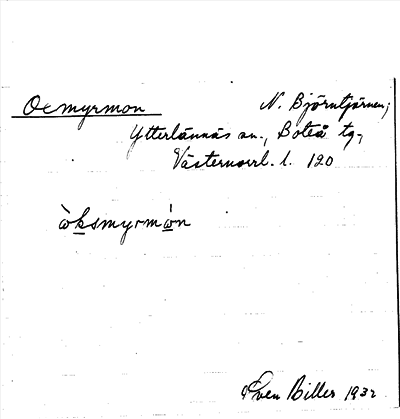 Oxmyrmon N. Björntjärnen,
Ytterlännäs sn., Boteå tg.,
Västernorrl. l. 120
òksmyrmón
Sven Biller 1932